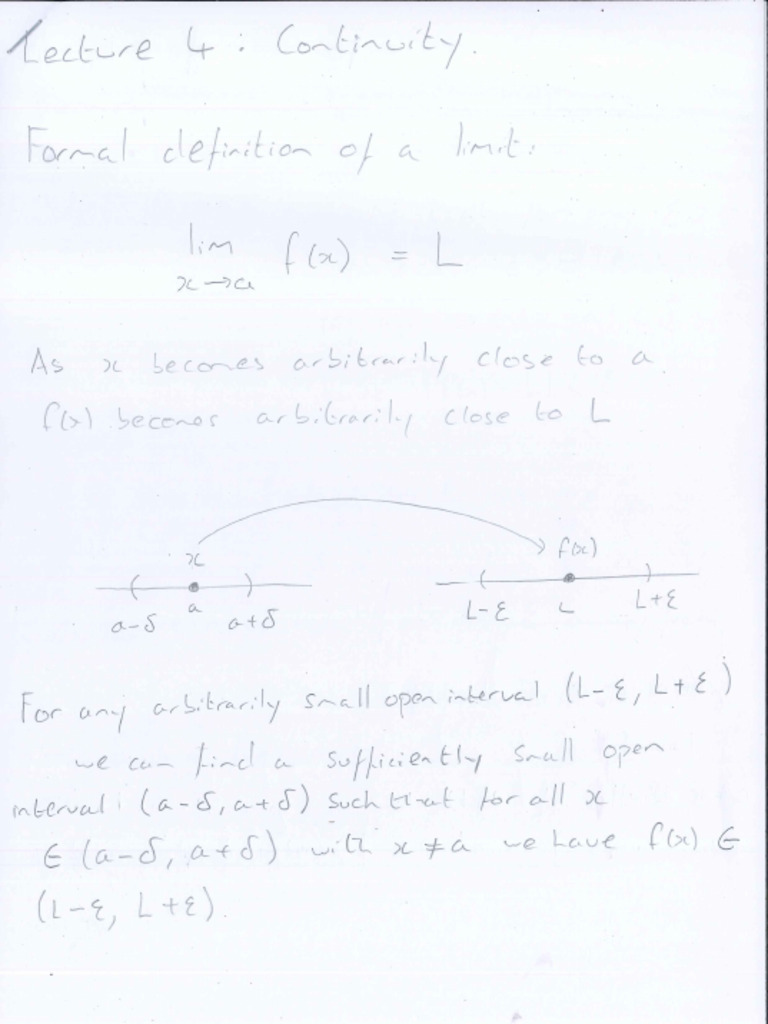 Lecture 4 : Continuity.
Formal definition of a limit:
lim f(x) = L
x→a
As x becomes arbitrarily close to a
f(x) becomes arbitrarily close to L
x f(x)
a-δ a a+δ L-ε L L+ε
For any arbitrarily small open interval (L-ε, L+ε)
we can find a sufficiently small open
interval (a-δ, a+δ) such that for all x
∈ (a-δ, a+δ) with x ≠ a we have f(x) ∈
(L-ε, L+ε).